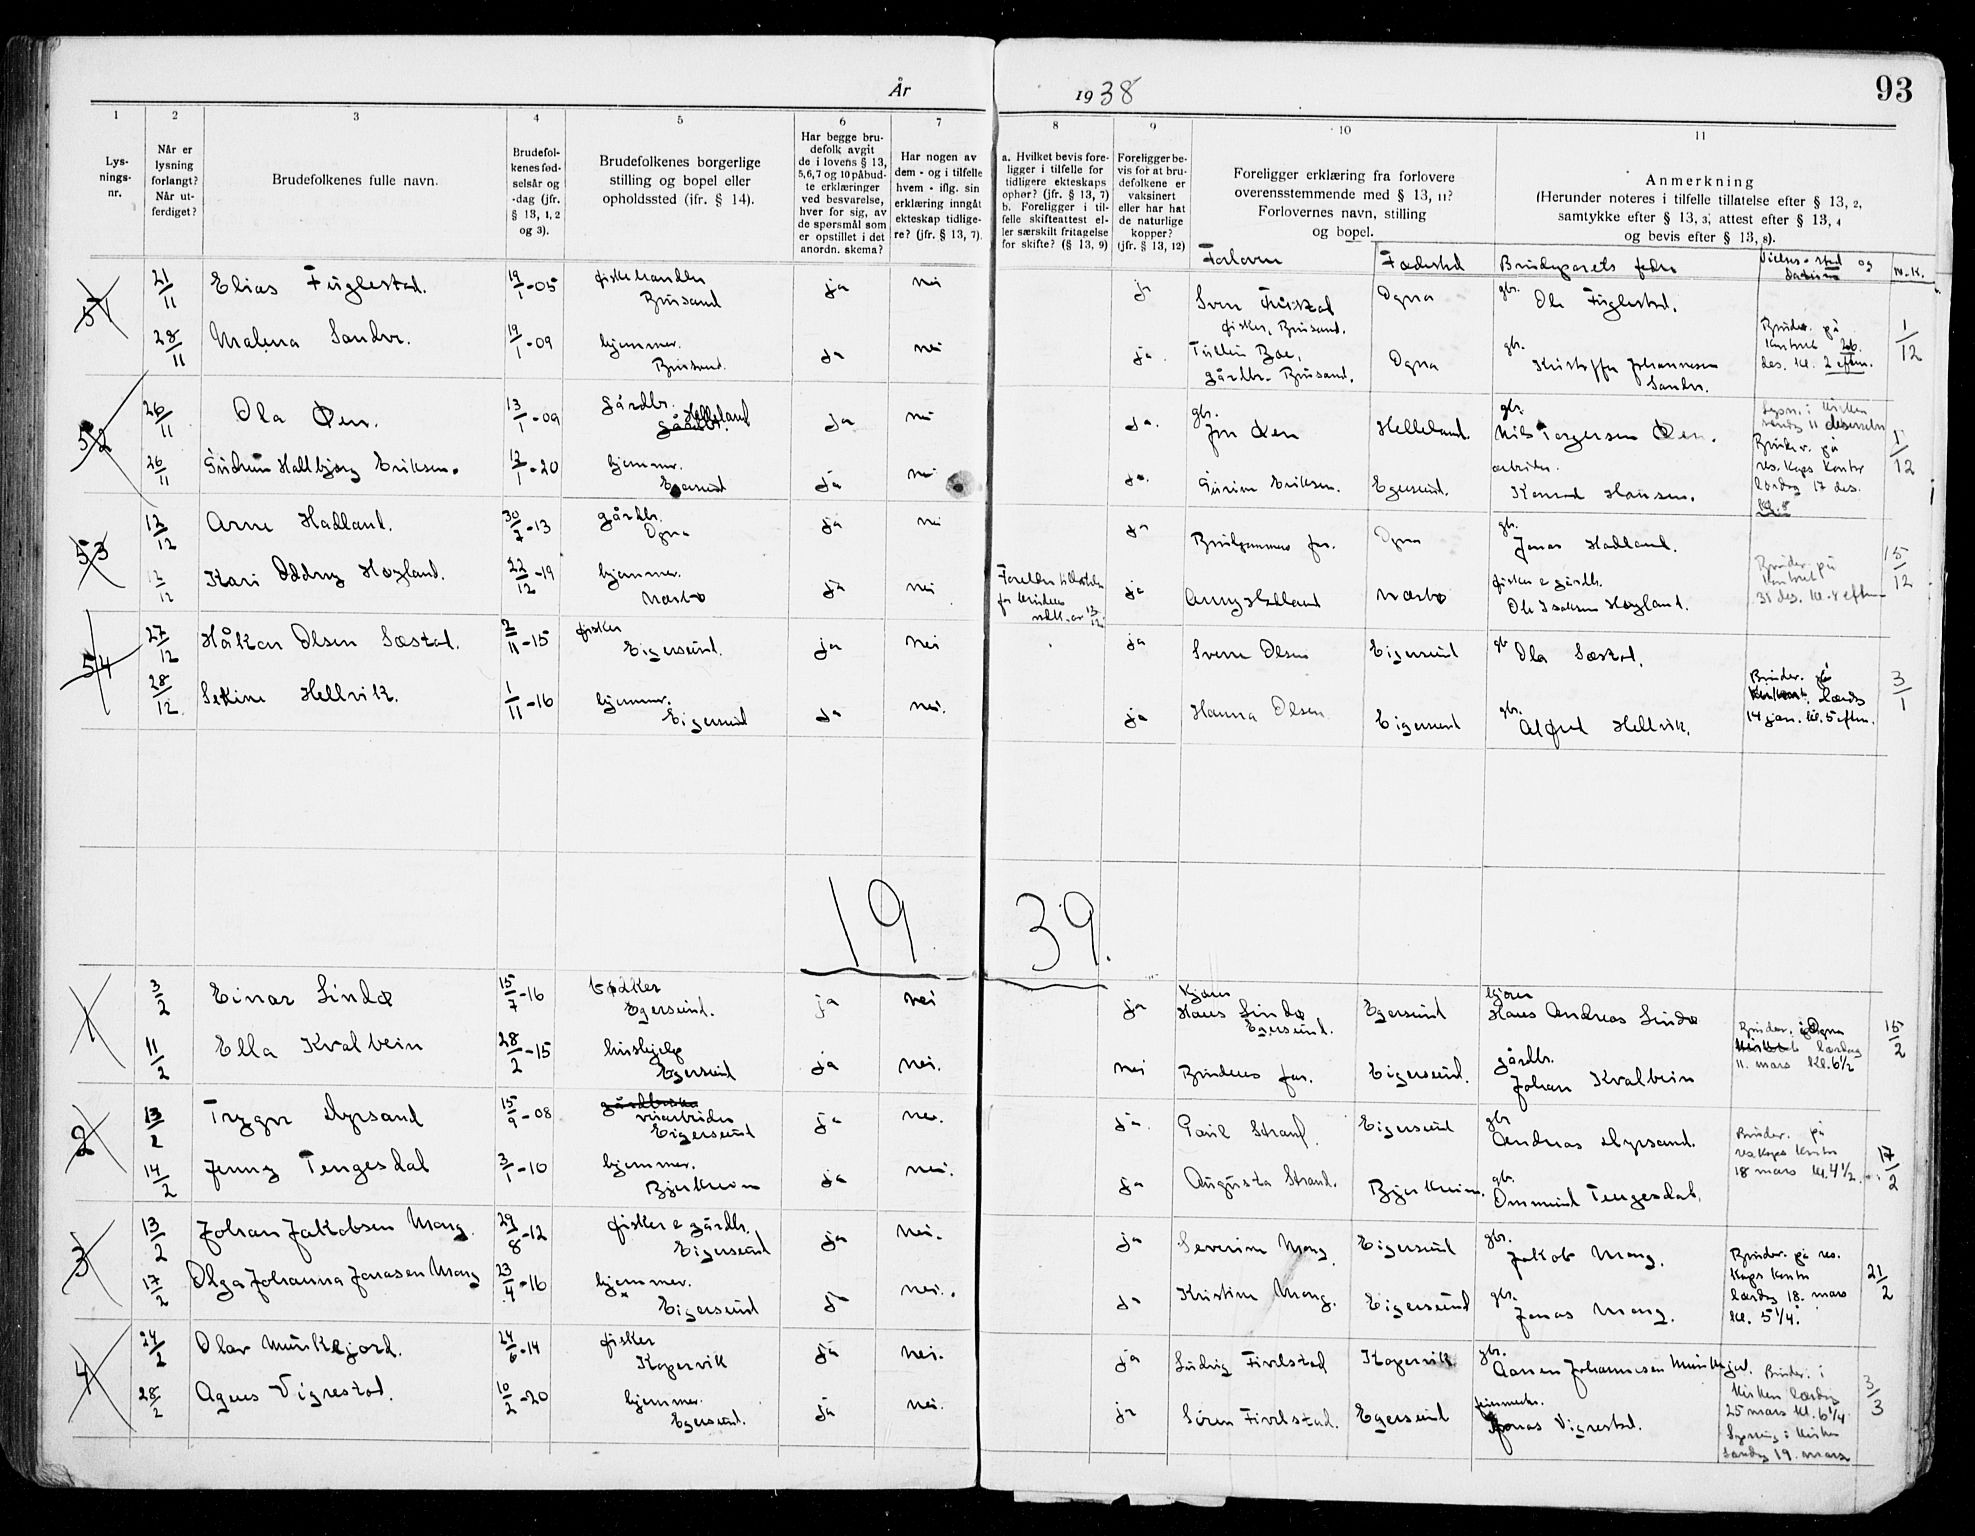 År 1938
93
1 2 3 4 5 6 7 8 9 10 11
Lys-
nings-
nr.
Når er
lysning
forlangt?
Når ut-
ferdiget?
Brudefolkenes fulle navn.
Brudefol-
kenes fød-
selsår og
-dag (jfr.
§ 13, 1, 2
og 3).
Brudefolkenes borgerlige
stilling og bopel eller
opholdssted (ifr. § 14).
Har begge bru-
defolk avgit
de i lovens § 13,
5,6,7 og 10 påbud-
te erklæringer
ved besvarelse,
hver for sig, av
de spørsmål som
er opstillet i det
anordn. skema?
Har nogen av
dem - og i tilfelle
hvem - iflg. sin
erklæring inngåt
ekteskap tidlige-
re? (jfr. § 13, 7).
a. Hvilket bevis fore-
ligger i tilfelle for
tidligere ekteskaps
ophør? (jfr. § 13, 7)
b. Foreligger i til-
felle skifteattest el-
ler særskilt fritagelse
for skifte? (§ 13, 9)
Foreligger be-
vis for at bru-
defolkene er
vaksinert
eller har hat
de naturlige
kopper?
(jfr. § 13, 12)
Foreligger erklæring fra forlovere
overensstemmende med § 13, 11?
Forlovernes navn, stilling
og bopel.
Anmerkning
(Herunder noteres i tilfelle tillatelse efter § 13, 2,
samtykke efter § 13, 3, attest efter § 13, 4
og bevis efter § 13, 8).
Forlovere Fødested Brudeparets fedre Vielses-sted og datum M.K.
51 21/11 Elias Fuglestad. 19/1-05 fiskehandler Brusand ja nei ja Ogna gbr. Ole Fuglestad.
fisker, Brusand.
28/11 Malena Sandve. 19/1-09 hjemmev. Brusand. ja nei ja. Tullin Boe, gårdbr. Brusand. Ogna gbr. Kristoffer Johannesen Sandve. Brudev. på kontoret 26. des. kl. 2 eftm. 1/12
52 26/11 Ola Øen. 13/1-09 gårdbr. Helleland gårdbr. ja nei ja. gbr. Jon Øen Helleland. gbr. Nils Torgersen Øen. Lysn. i kirken søndag 11 desember
26/11 Gudrun Hallbjørg Eriksen. 12/1-20 hjemmev. Egersund ja nei ja. Gurine Eriksen. Egersund. arbeider. Konrad Hansen. Brudev. på res. kaps kontor lørdag 17 des. kl. 5 1/12
53 12/12 Arne Hadland. 30/7-13 gårdbr. Ogna ja nei ja Brudgommens far. Ogna gbr. Jonas Hadland.
12/12 Kari Oddny Høyland. 22/12-19 hjemmev. Nærbø ja nei ja Anny Hadland Nærbø fisker e gårdbr. Ole Isaksen Høyland. Brudev. på kontoret 31 des. kl. 4 eftm 15/12
54 27/12 Håkon Olsen Sæstad. 2/11-15 fisker Eigersund. ja nei ja Sverre Olsen Eigersund gbr Ola Sæstad.
28/12 Sekine Hellvik. 1/11-16 hjemmev. Eigersund ja nei. ja Hanna Olsen Eigersund gbr. Alfred Hellvik. Brudev. på kontoret lørdag 14 jan. kl. 5 eftm. 3/1
1939.
1 3/2 Einar Lindø 15/7-16 bødker Egersund. ja nei ja Kjører Hans Lindø Egersund. Egersund kjører Hans Andreas Lindø
11/2 Ella Kvalbein 28/2-15 hushjelp Egersund ja nei. nei Brudens far. Eigersund. gårdbr. Johan Kvalbein Brudev. i Ogna kirke lørdag 11. mars kl. 6½ 15/2
2 13/2 Trygve Myrsand 15/9-08 gårdbruker veiarbeider Eigersund ja nei. ja. Paul Strand. Eigersund gbr Andreas Myrsand.
14/2 Jenny Tengesdal 3/1-10 hjemmev. Bjerkreim ja nei. ja Augusta Strand. Bjerkreim. gbr. Ommund Tengesdal. Brudev. på reskaps kontor 18 mars kl. 4½. 17/2
3 13/2 Johan Jakobsen Mong. 29/8-12 fisker e gårdbr. Eigersund ja nei. ja Severin Mong Eigersund gbr. Jakob Mong.
17/2 Olga Johanna Jonasen Mong 23/4-16 hjemmev. Eigersund ja nei. ja Kristine Mong. Eigersund gbr. Jonas Mong. Brudev. på res. kaps kontor lørdag 18. mars kl. 5¼. 21/2
4 24/2 Olav Munkejord. 24/6-14 fisker Kopervik ja nei. ja Ludvig Fivelstad Kopervik gbr. Aanen Johannesen Munkejord.
28/2 Agnes Vigrestad. 10/2-20 hjemmev. Egersund. ja nei. ja Søren Fivelstad. Egersund Jonas Vigrestad. Brudev. i kirken lørdag 25 mars kl. 6¼ Lysning i kirken søndag 19. mars 3/3